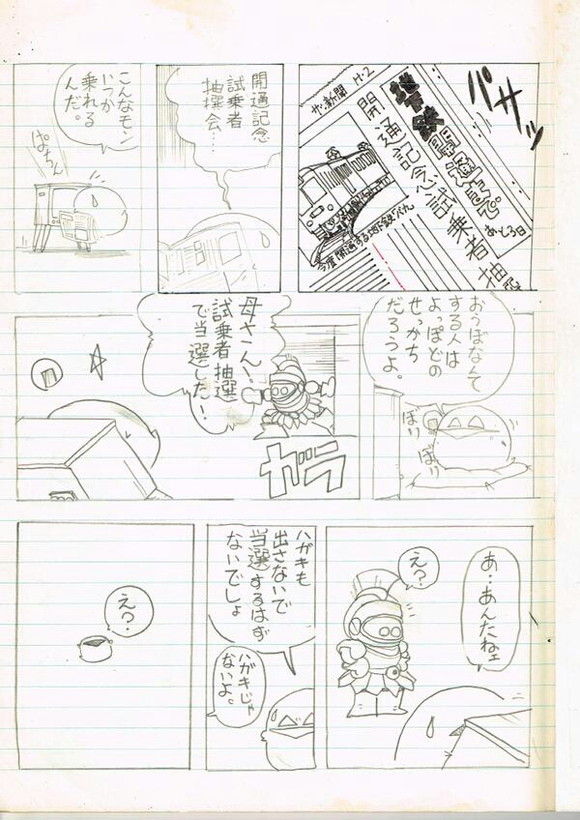 バサッ
サ.新聞
H.2
開通記念試乗者抽選
あと3日
今度開通する地下鉄
開通記念
試乗者
抽撰会…
こんなモン
いつか
乗れる
んだ。
ぱちん
おうぼなんて
する人は
よっぽどの
せっかち
だろうよ。
ぼり
ぼり
母さん!
試乗者抽選
で当選した!
ガラ
あ・あんたねェ
え?
ハガキも
出さないで
当選するはず
ないでしょ
ハガキじゃ
ないよ。
え?